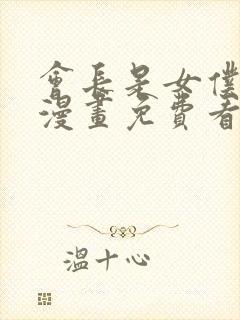 會長是女僕
漫畫免費看
溫十心